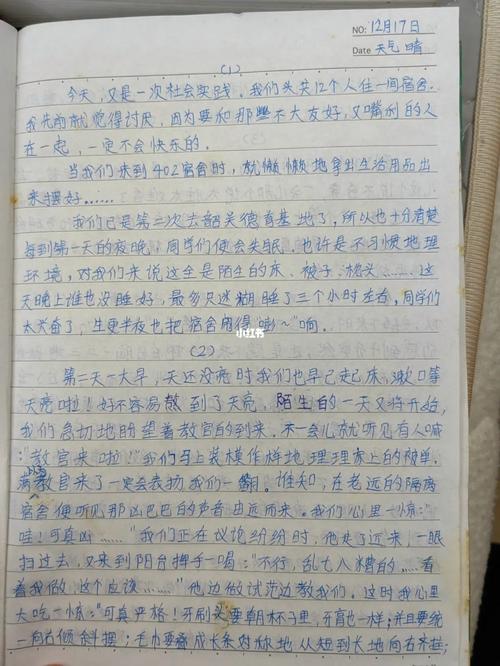 NO: 12月17日
Date 天气 晴
(1)
今天，又是一次社会实践，我们头共12个人住一间宿舍。
我先前就觉得讨厌，因为要和那些不大友好，又嘴利的人
在一起，一定不会快乐的。
当我们来到402宿舍时，就懒懒地拿出生活用品出
来摆好……
我们已是第二次去韶关德育基地了，所以也十分清楚
每到第一天的夜晚，同学们便会失眠，也许是不习惯地理
环境，对我们来说这全是陌生的床、被子、枕头……这
天晚上谁也没睡好，最多只迷糊睡了三个小时左右，同学们
太兴奋了，三更半夜也把宿舍闹得“嘭~”响。
小红书
(2)
第二天一大早，天还没亮时我们也早已起床，漱口等
天亮啦！好不容易熬到了天亮，陌生的一天又将开始，
我们急切地盼望着教官的到来，不一会儿就听见有人喊
“教官来啦！”我们马上装模作样地理理床上的被单，
满以为教官来了一定会表扬我们一翻。谁知，在老远的隔离
宿舍便听见那凶巴巴的声音由远而来。我们心里一惊：“
哇！可真凶……”我们正在议论纷纷时，他走了近来，一眼
扫过去，又来到阳台挥手一喝：“不行，乱七八糟的……看
着我做，这个应该……”他边做试范边教我们。这时我心里
大吃一惊：“可真严格！牙刷头要朝杯子里，牙膏也一样；并且要统
一向右倾斜摆；毛巾要 成长条对称地从短到长地向右齐挂；